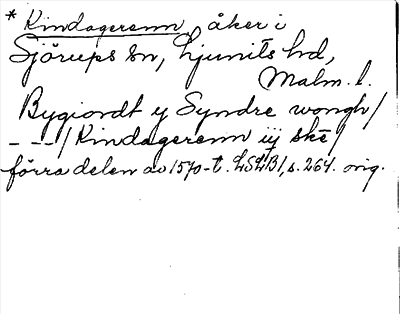 * Kindagerenn, åker i
Sjörups sn, Ljunits hd,
Malm. l.
Bygiordt y Syndre wongh/
- - -/ Kindagerenn iij ske/
förra delen av 1570-t. LSLB1, s. 264. orig.